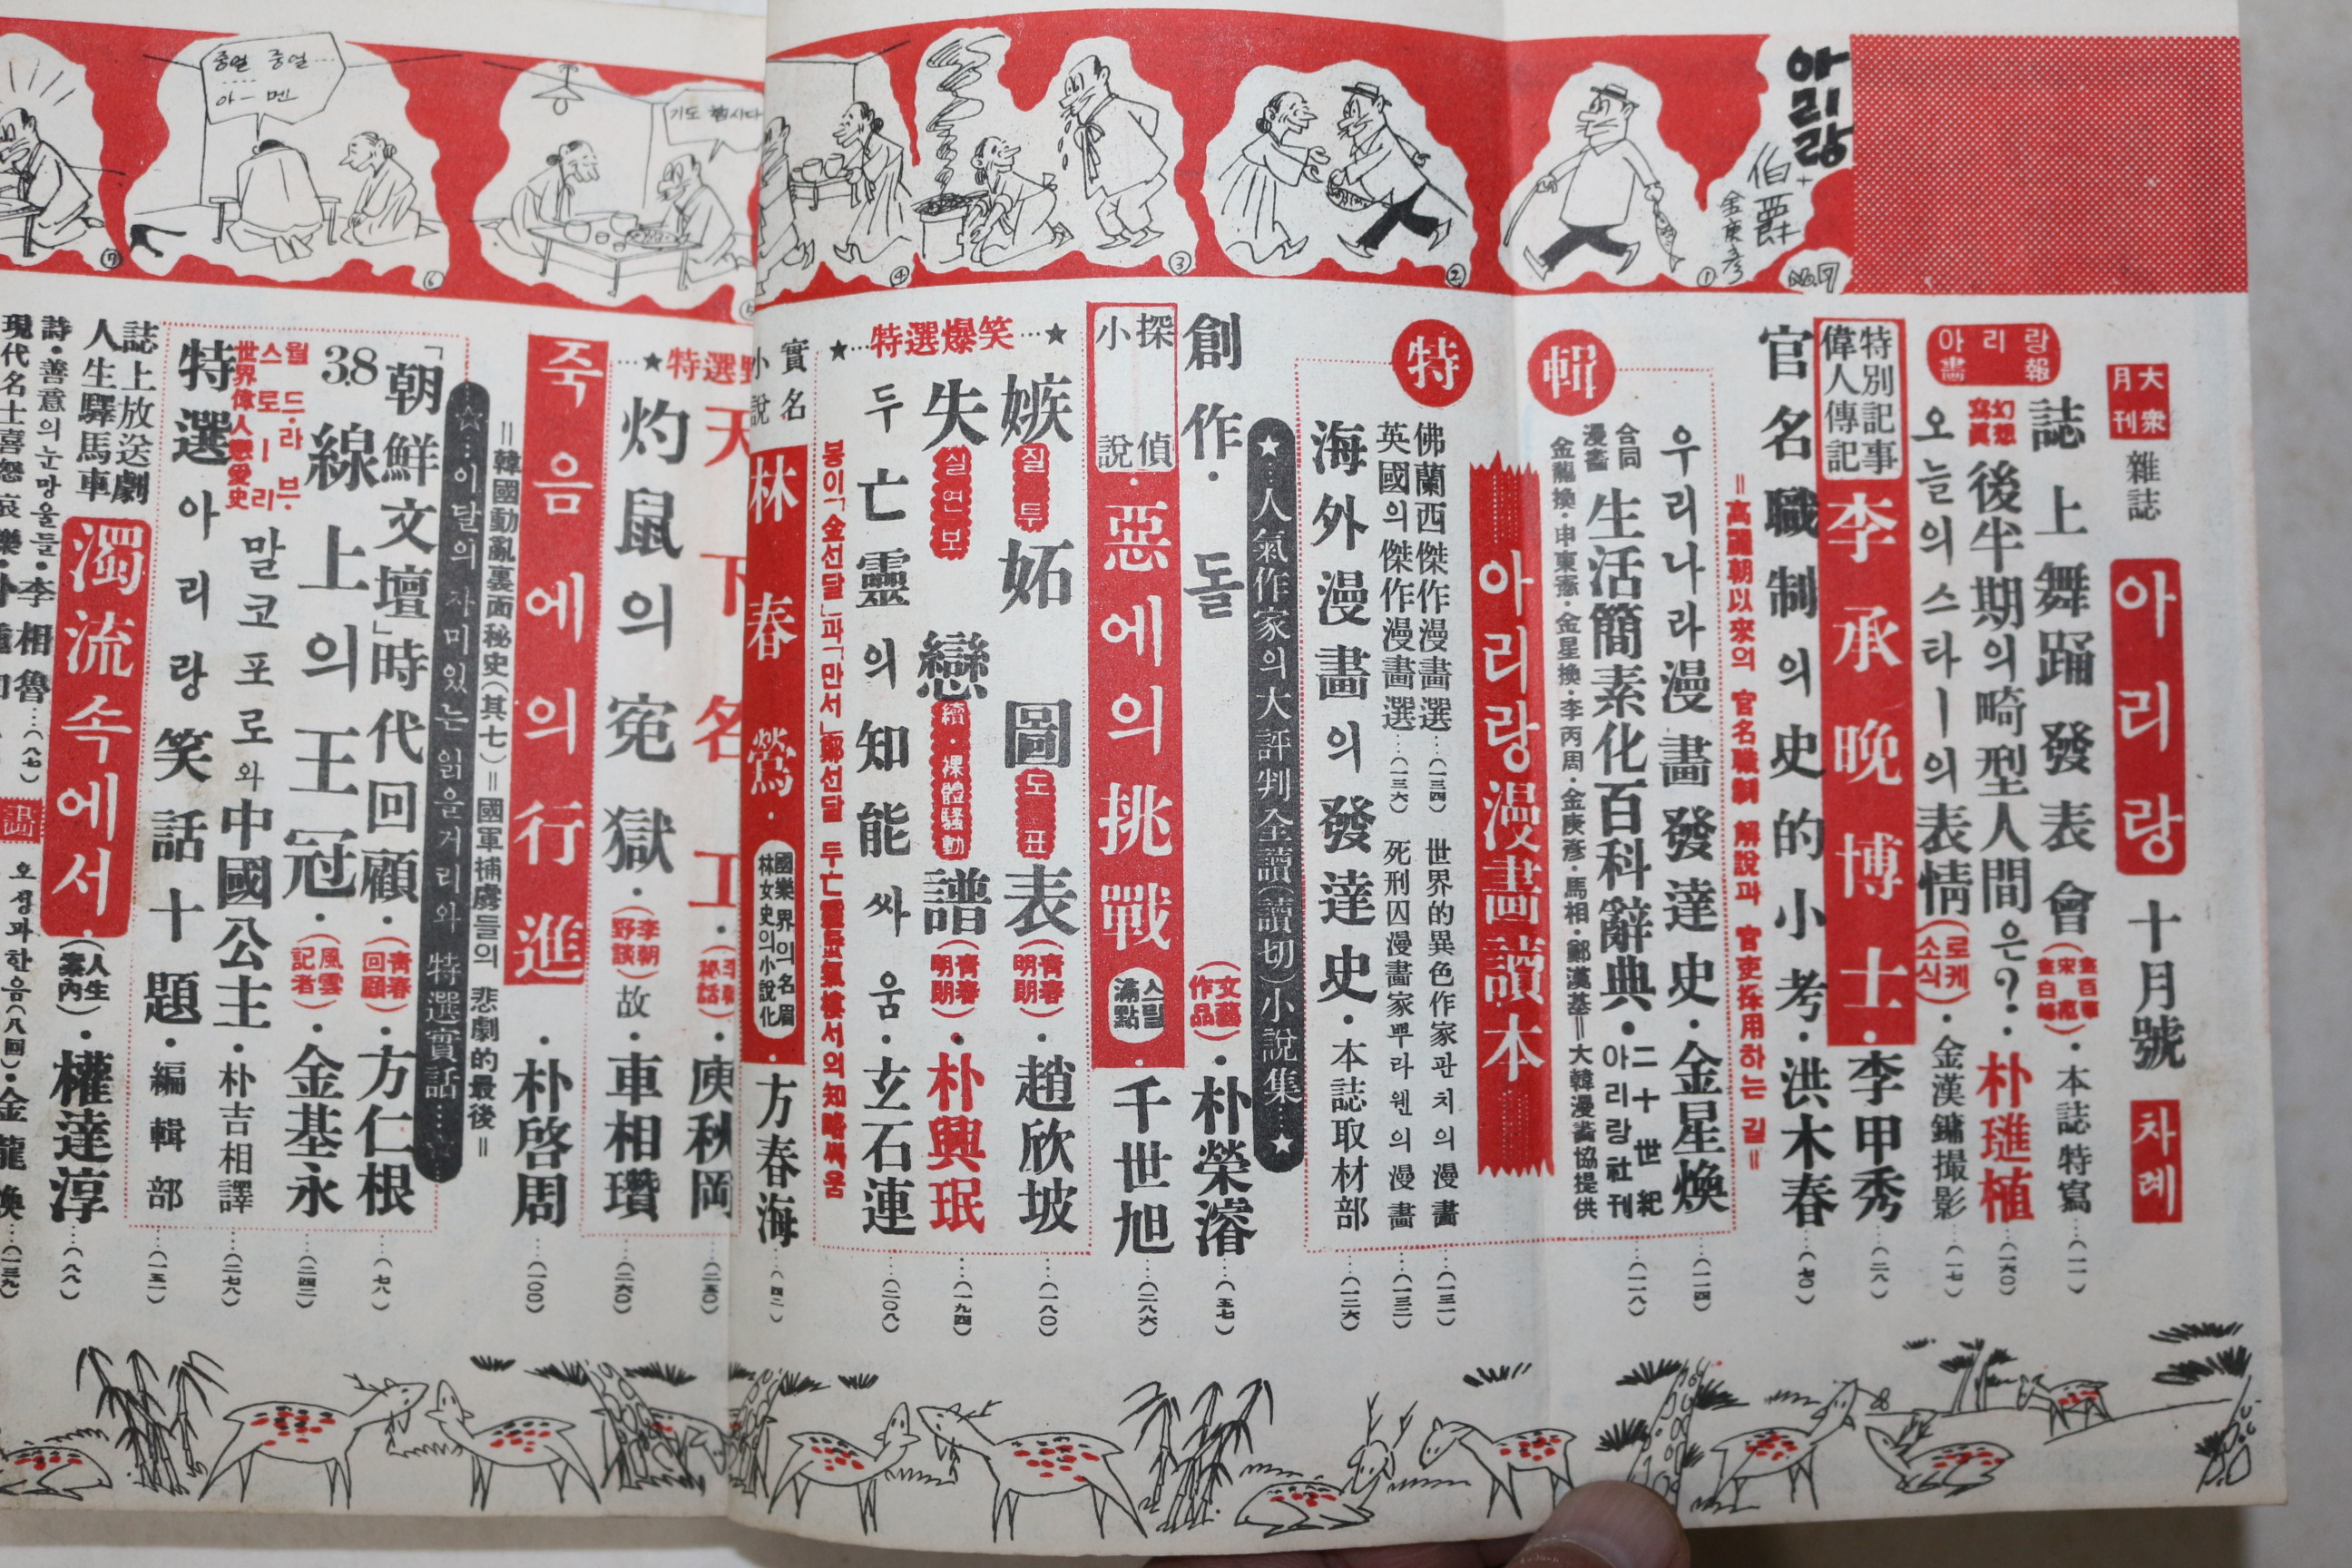 아리랑
伯爵
金庚彥
No.7
①
②
③
④
기도 합시다
⑥
중얼 중얼…
아ー멘
⑦
大衆
月刊
雜誌
아리랑
十月號
차례
아리랑
畵報
誌上舞踊發表會
・本誌特寫…(一一)
幻想
寫眞
後半期의 畸型人間은?・朴璡植…(一六〇)
오늘의 스타ー의 表情(로케소식)・金漢鏞撮影…(一七)
特別記事
偉人傳記
李承晩博士・李甲秀…(二八)
官名職制의 史的小考・洪木春…(七〇)
=高麗朝以來의 官名職制 解說과 官吏採用하는 길=
特輯
아리랑漫畵讀本
우리나라漫畵發達史・金星煥…(一一四)
合同
漫畵
生活簡素化百科辭典・二十世紀아리랑社刊…(一一八)
金龍換・申東憲・金星換・李丙周・金庚彥・馬相・鄭漢基=大韓漫畵協提供
佛蘭西傑作漫畵選…(一三四) 世界的異色作家관치의漫畵…(一三一)
英國의 傑作漫畵選…(一三六) 死刑囚漫畵家뿌라웬의漫畵…(一三二)
海外漫畵의 發達史・本誌取材部…(一二六)
★…人氣作家의 大評判全讀(讀切)小說集…★
創作・돌(文藝作品)・朴榮濬…(五七)
探偵
小說
惡에의 挑戰
스릴
滿點
・千世旭…(二八六)
★…特選爆笑…★
嫉妬圖表
질투
도표
(靑春明朗)・趙欣坡…(一八〇)
失戀譜
실연보
續・裸體騷動
(靑春明朗)・朴興珉…(一九四)
두 亡靈의 知能싸움・玄石連…(二〇八)
봉이「金선달」과「만서」鄭선달 두亡靈
實名
小說
林春鶯・
國樂界의 名眉
林女史의 小說化
・方春海…(四二)
…★特選野
天下名工・
庚秋岡…(二五〇)
灼鼠의 寃獄・(李朝野談)故・車相瓚…(二六〇)
죽음에의 行進・朴啓周…(一〇〇)
=韓國動亂裏面秘史(其七)=國軍捕虜들의 悲劇的最後=
☆…이달의 자미있는 읽을거리와 特選實話…☆
「朝鮮文壇」時代回顧・(靑春回顧)・方仁根…(七八)
3.8線上의 王冠・(風雲記者)・金基永…(二四二)
월드・라브・스로ー리
世界偉人戀愛史
말코포로와 中國公主・朴吉相譯…(二七八)
特選아리랑笑話十題・編輯部…(一五一)
誌上放送劇
人生驛馬車
濁流속에서・(人生案內)・權達淳…(八八)
詩・善意의 눈망울들・李相魯…(八七)
現代名士喜怒哀樂・
오성과한음(八回)・金龍煥…(一三九)